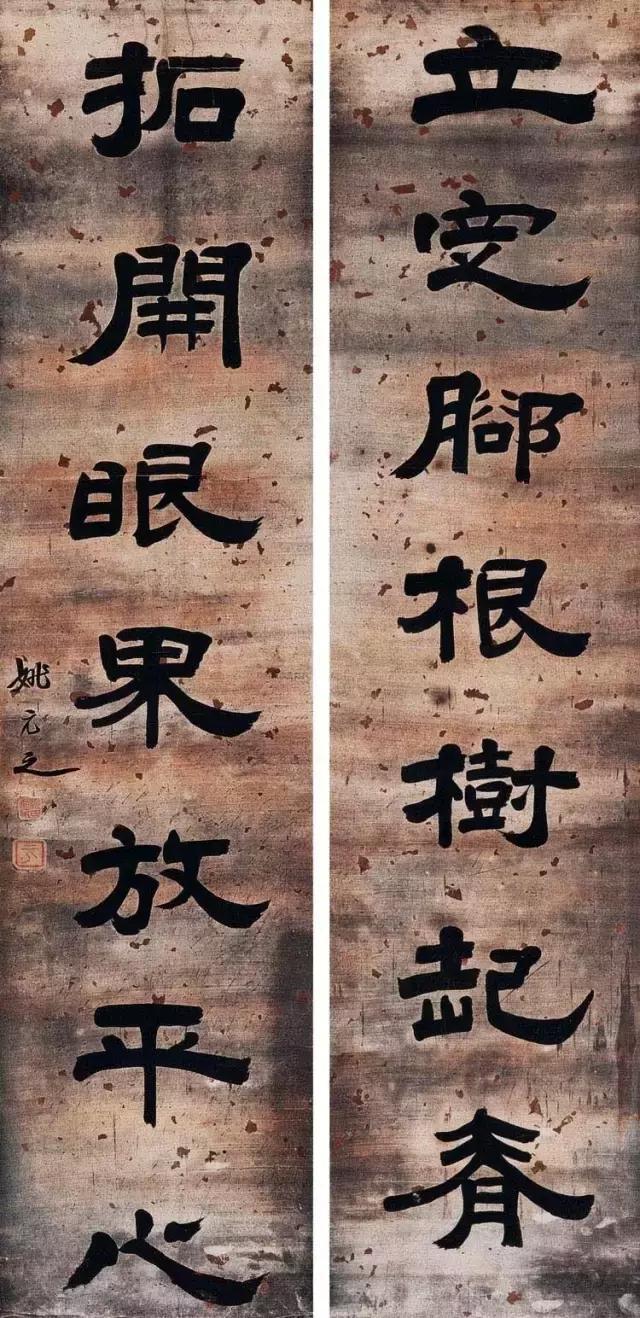 立定腳根樹起脊
拓開眼界放平心
姚元之